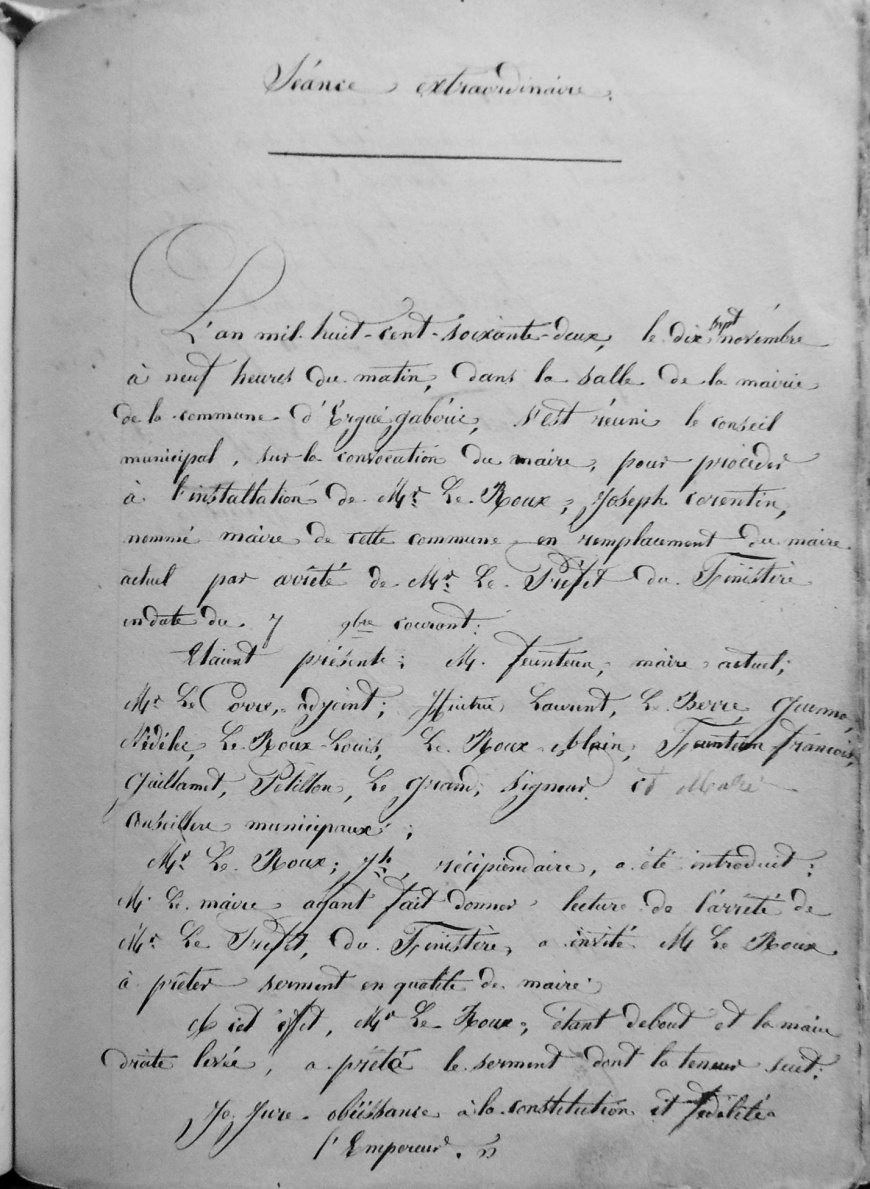 Séance extraordinaire.
L'an mil-huit-cent-soixante-deux, le dix sept novembre
à neuf heures du matin, dans la salle de la mairie
de la commune d'Ergué-gabéric, s'est réuni le conseil
municipal, sur la convocation du maire, pour procéder
à l'installation de Mr. Le Roux, Joseph corentin,
nommé maire de cette commune en remplacement du maire
actuel par arrêté de Mr. Le Préfet du Finistère
en date du 7 9bre courant.
Etaient présents: M. feunteun, maire actuel;
Mr. Le Corre, adjoint; Laurent, Le Berre, Guenno,
Nédélec, Le Roux Louis, Le Roux Alain, Feunteun françois,
Gaillamet, Pétillon, Le grand, Signour et Mahé
conseillers municipaux;
Mr. Le Roux, Jh, récipiendaire, a été introduit;
M. Le maire ayant fait donner lecture de l'arrêté de
Mr. Le Préfet, du Finistère, a invité M Le Roux
à prêter serment en qualité de maire.
A cet effet, Mr Le Roux, étant debout et la main
droite levée, a prêté le serment dont la teneur suit:
Je Jure obéissance à la constitution et fidélité à
l'Empereur. »